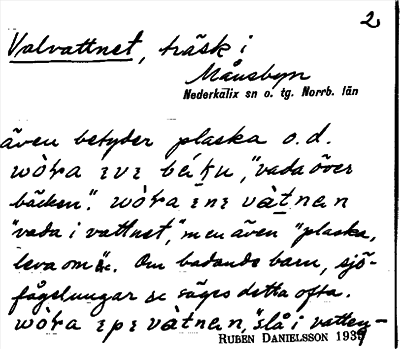 2
Valvattnet, träsk i
Månsbyn
Nederkalix sn o. tg. Norrb. län
även betyder plaska o.d.
wòra ɪvɪ bέku, "vada över
bäcken". wòra ɪnɪ vàtnan
"vada i vattnet," men även "plaska,
leva om &c. Om badande barn, sjö-
fågelungar &c säges detta ofta.
wòra ɪpɪ vàtnan, "slå i vatten-
RUBEN DANIELSSON 1935